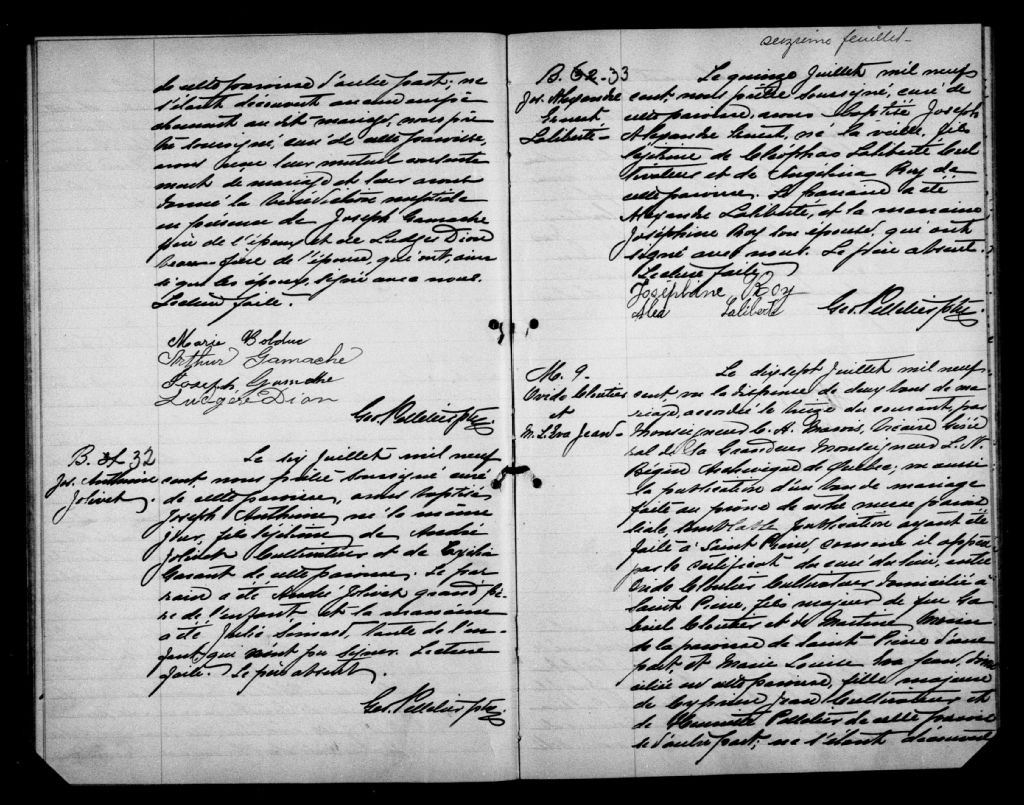 de cette paroisse d'autre part; ne
s'étant découvert aucun empê-
chement au dit mariage, nous prê-
tre soussigné, curé de cette paroisse,
avons reçu leur mutuel consente
ment de mariage et leur avons
donné la bénédiction nuptiale
en présence de Joseph Gamache
père de l'époux et de Ludger Dion
beau-frère de l'épouse, qui ont, ainsi
que les époux, signé avec nous.
Lecture faite.
Marie Bolduc
Arthur Gamache
Joseph Gamache
Ludger Dion
Geo. Pelletier ptre
B. 32
Jos. Anthime
Jolivet.
Le six Juillet mil neuf
cent nous prêtre soussigné curé
de cette paroisse, avons baptisé
Joseph Anthime, né le même
jour, fils légitime de André
Jolivet Cultivateur et de Exilia
de cette paroisse. Le par-
rain a été André Jolivet grand père
de l'enfant, et la marraine
a été Julie Simard, tante de l'en-
fant, qui n'ont pu signer. Lecture
faite. Le père absent.
Geo. Pelletier ptre
seizième feuillet
B. 62-33
Jos. Alexandre
Ernest
Laliberté
Le quinze Juillet mil neuf
cent, nous prêtre soussigné, curé de
cette paroisse, avons baptisé Joseph
Alexandre Ernest, né la veille, fils
légitime de Cléophas Laliberté Cul
tivateur et de Angélina Roy de
cette paroisse. Le parrain a été
Alexandre Laliberté, et la marraine
Joséphine Roy son épouse, qui ont
signé avec nous. Le père absent.
Lecture faite
Joséphine Roy
Alex Laliberte
Geo. Pelletier ptre
M. 9.
Ovide Cloutier
et
M. L. Eva Jean
Le dix sept Juillet mil neuf
cent, vu la dispense de deux bans de ma-
riage, accordée le du courant, par
Monseigneur C. A. Marois, Vicaire Géné
ral de Sa Grandeur Monseigneur L. N.
Bégin Archevêque de Québec; vu aussi
la publication d'un ban de mariage
faite au prône de notre messe parois
siale, semblable publication ayant été
faite à Saint Pierre, comme il appert
par le certificat du curé du lieu, entre
Ovide Cloutier Cultivateur domicilié à
Saint Pierre, fils majeur de feu Ga
briel Cloutier et de Martine Morin
de la paroisse de Saint-Pierre d'une
part et Marie Louise Eva Jean, domi
ciliée en cette paroisse, fille majeure
de Cyprien Jean Cultivateur et
de Pelletier de cette parois
se d'autre part; ne s'étant découvert